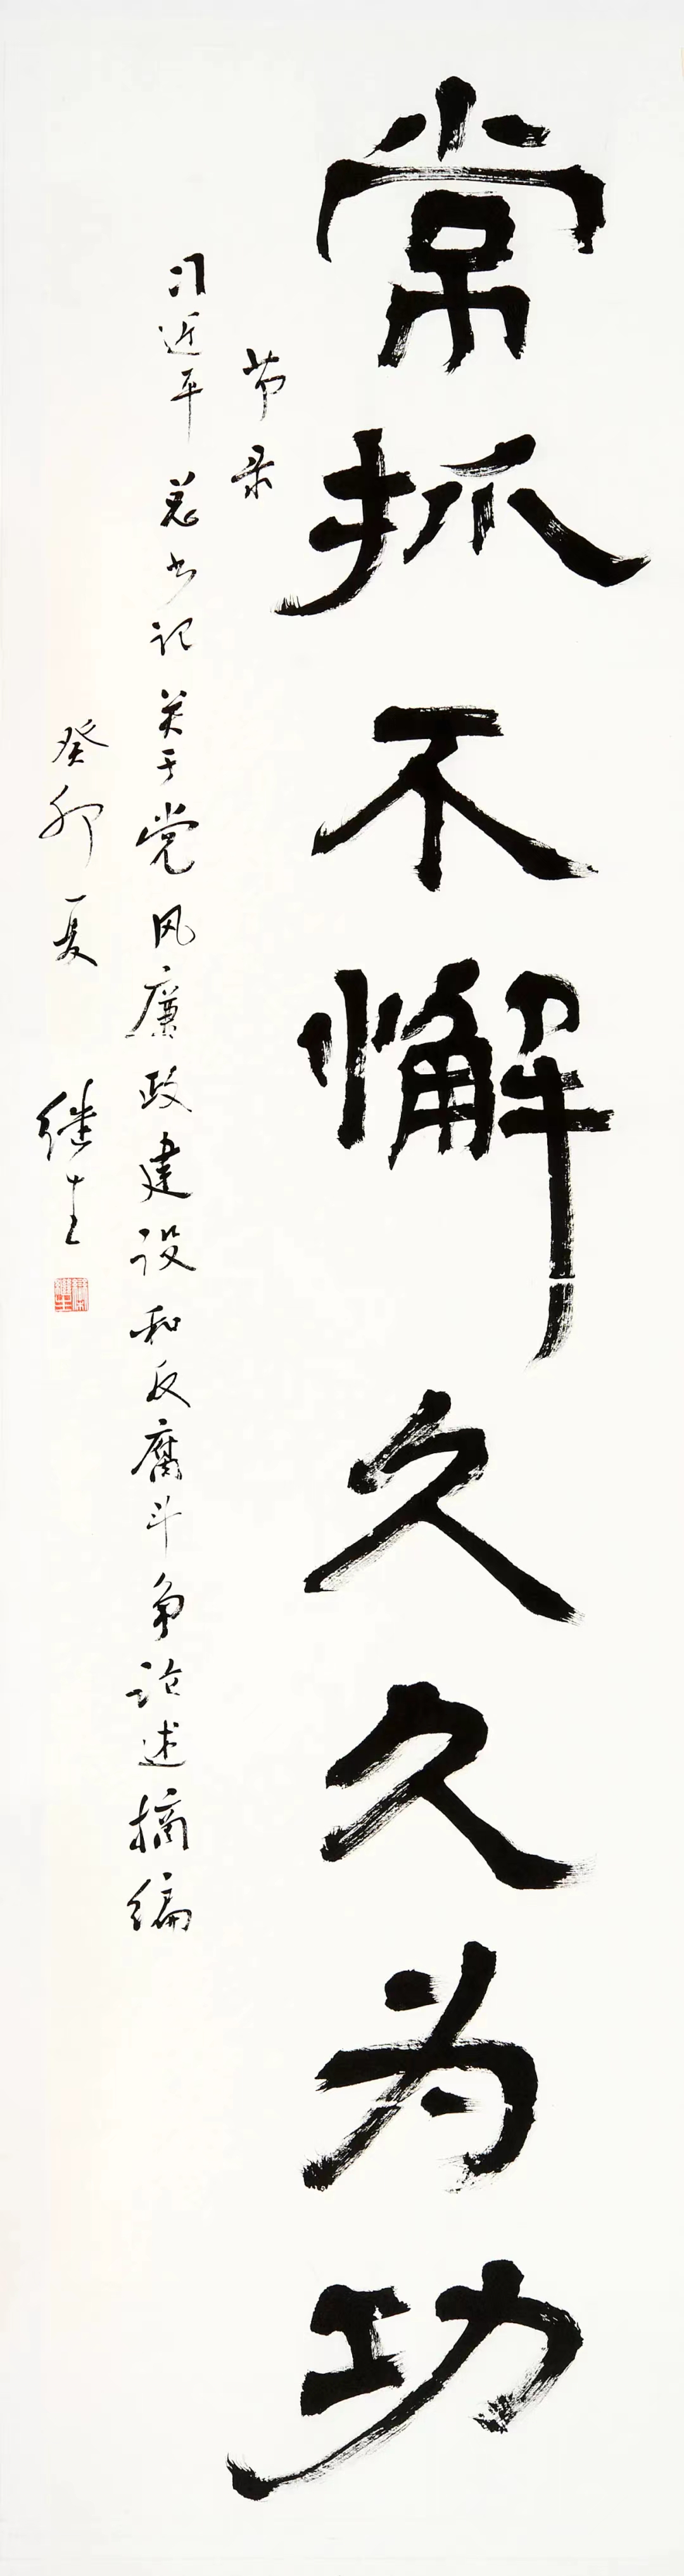 常抓不懈久久为功
节录
习近平总书记关于党风廉政建设和反腐斗争论述摘编
癸卯夏 继生